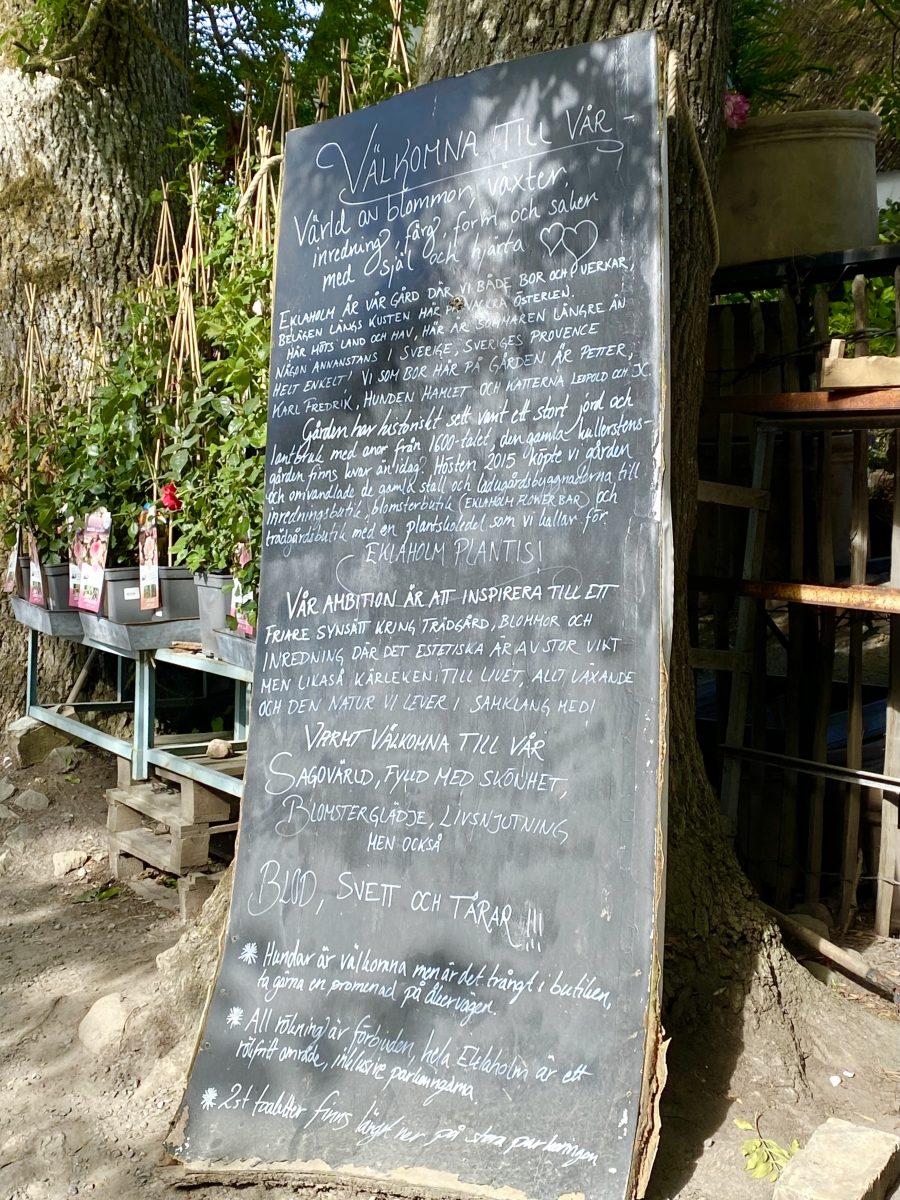 VÄLKOMNA TILL VÅR -
Värld av blommor, växter,
inredning, färg, form och saker
med själ och hjärta
EKLAHOLM ÄR VÅR GÅRD DÄR VI BÅDE BOR OCH VERKAR,
BELÄGEN LÄNGS KUSTEN HÄR PÅ VACKRA ÖSTERLEN.
HÄR MÖTS LAND OCH HAV, HÄR ÄR SOMMAREN LÄNGRE ÄN
NÅGON ANNANSTANS I SVERIGE, SVERIGES PROVENCE
HELT ENKELT! VI SOM BOR HÄR PÅ GÅRDEN ÄR PETTER,
KARL FREDRIK, HUNDEN HAMLET OCH KATTERNA LEOPOLD OCH
Gården har historiskt sett varit ett stort jord och
lantbruk med anor från 1600-talet, den gamla kullerstens-
gården finns kvar än idag. Hösten 2015 köpte vi gården
och omvandlade de gamla stall och ladugårdsbyggnaderna till
inredningsbutik, blomsterbutik (EKLAHOLM FLOWER BAR) och
trädgårdsbutik med en plantskoledel som vi kallar för
EKLAHOLM PLANTIS!
VÅR AMBITION ÄR ATT INSPIRERA TILL ETT
FRIARE SYNSÄTT KRING TRÄDGÅRD, BLOMMOR OCH
INREDNING DÄR DET ESTETISKA ÄR AV STOR VIKT
MEN LIKASÅ KÄRLEKEN TILL LIVET, ALLT VÄXANDE
OCH DEN NATUR VI LEVER I SAMKLANG MED!
VARMT VÄLKOMNA TILL VÅR
SAGOVÄRLD, FYLLD MED SKÖNHET,
BLOMSTERGLÄDJE, LIVSNJUTNING
MEN OCKSÅ
BLOD, SVETT OCH TÅRAR !!!
* Hundar är välkomna men är det trångt i butiken,
ta gärna en promenad på åkervägen.
* All rökning är förbjuden, hela Eklaholm är ett
rökfritt område, inklusive parkeringarna.
* 2st toaletter finns längst ner på stora parkeringen